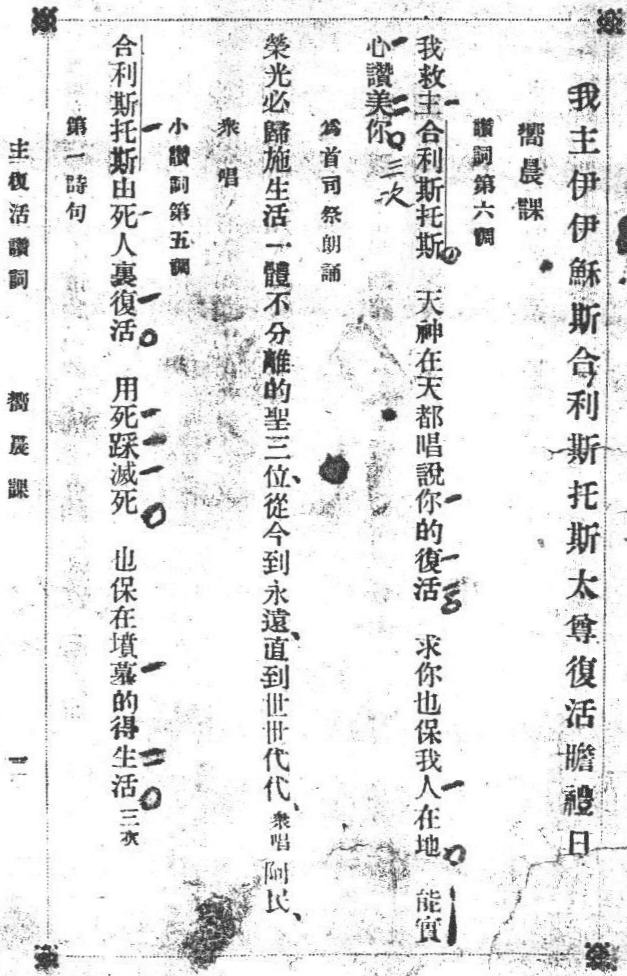 我主伊伊穌斯合利斯托斯太尊復活瞻禮日
嚮晨課
讚詞第六調
我救主合利斯托斯 天神在天都唱說你的復活 求你也保我人在地 能實
心讚美你 三次
爲首司祭朗誦
榮光必歸施生活一體不分離的聖三位、從今到永遠、直到世世代代、衆唱 阿民、
衆唱
小讚詞第五調
合利斯托斯由死人裏復活 用死踩滅死 也保在墳墓的得生活 三次
第一詩句
主復活讚詞 嚮晨課 一